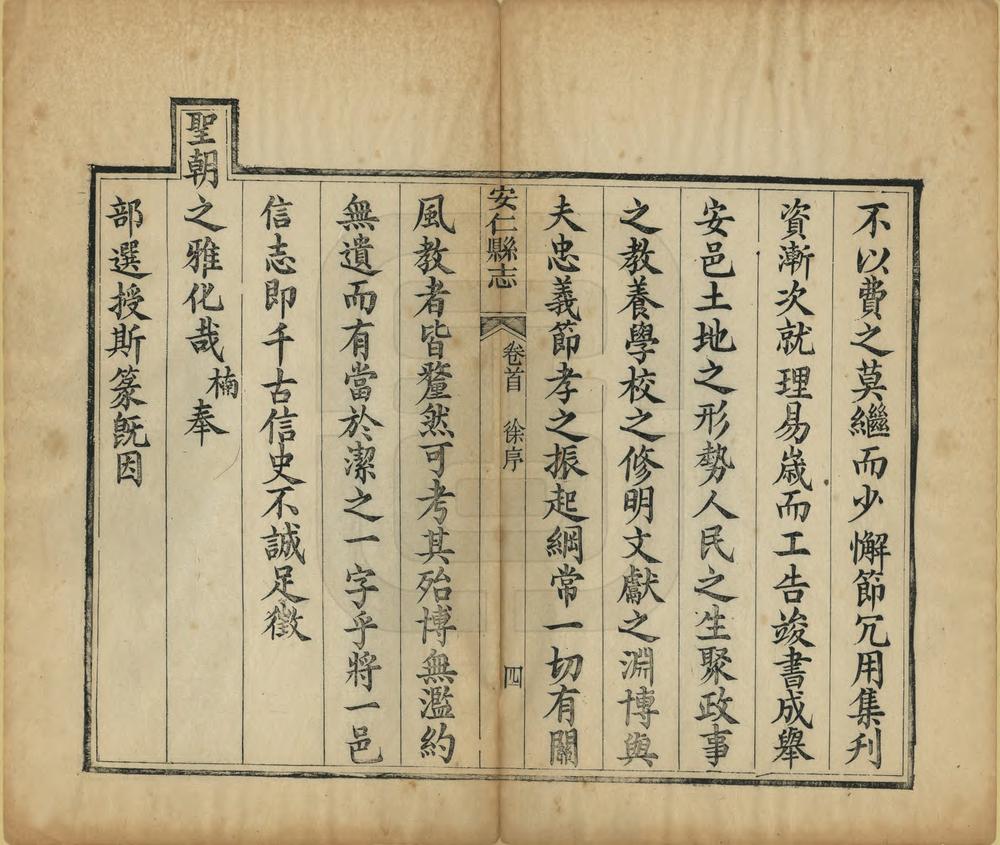 不以費之莫繼而少懈節冗用集刋
資漸次就理易嵗而工告竣書成舉
安邑土地之形勢人民之生聚政事
之教養學校之修明文獻之淵博與
夫忠義節孝之振起綱常一切有關
安仁縣志 卷首 徐序 四
風教者皆釐然可考其殆博無濫約
無遺而有當於潔之一字乎將一邑
信志即千古信史不誠足徵
聖朝之雅化哉楠奉
部選授斯篆旣因